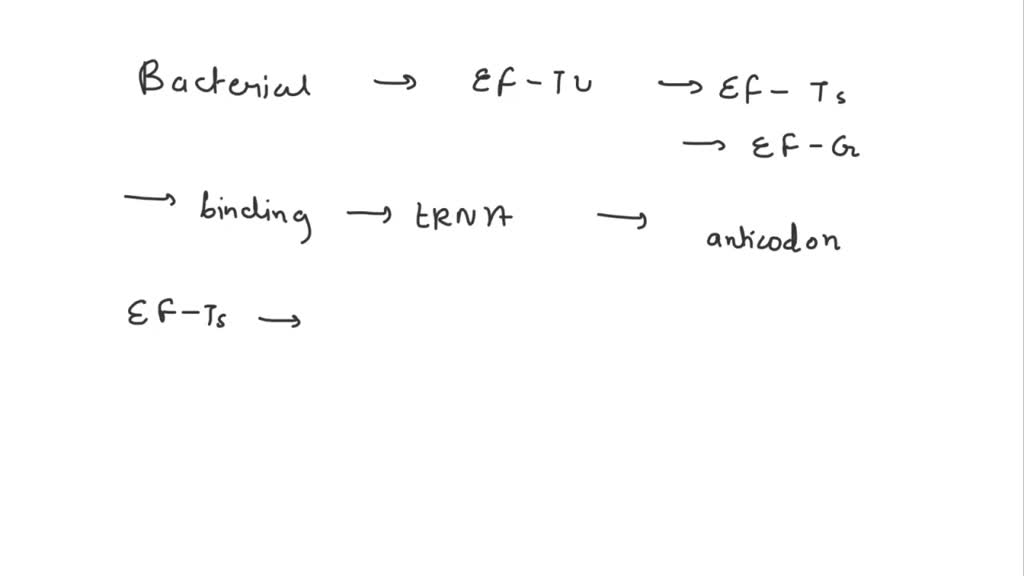 Bacterial → EF-TU → EF-Ts
→ EF-G
→ binding → tRNA → anticodon
EF-Ts →